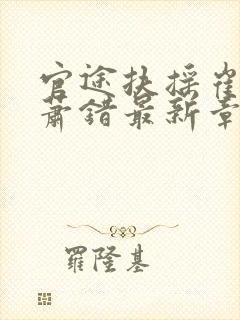 官途扶摇崔
萧错最新章
羅隆基